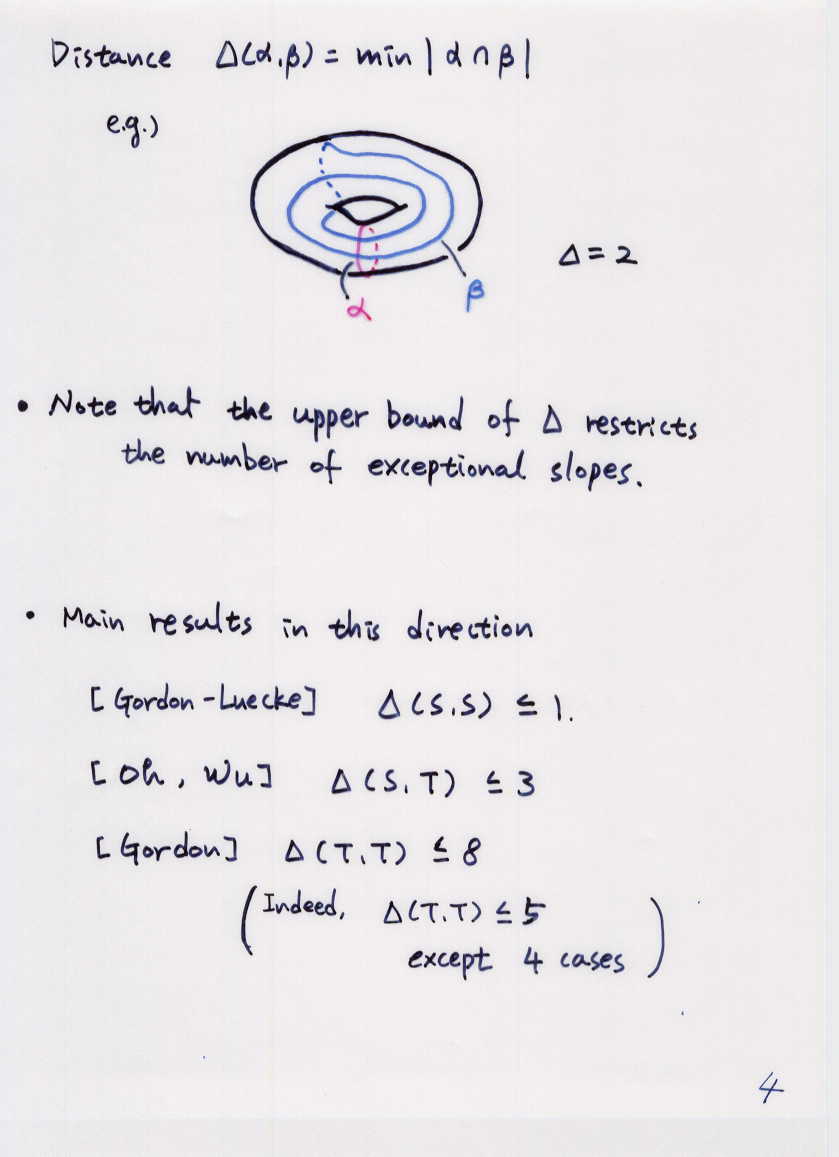 Distance Δ(α,β) = min | α ∩ β |
e.g.)
Δ = 2
β
α
• Note that the upper bound of Δ restricts
the number of exceptional slopes.
• Main results in this direction
[Gordon-Luecke] Δ(S,S) ≤ 1.
[Oh, Wu] Δ(S,T) ≤ 3
[Gordon] Δ(T,T) ≤ 8
(Indeed, Δ(T,T) ≤ 5
except 4 cases)
4